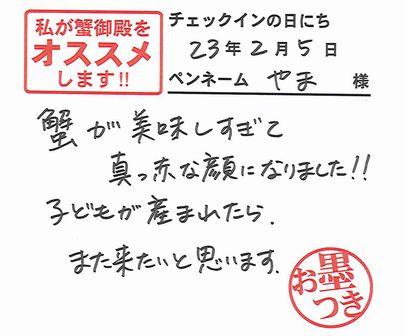 私が蟹御殿を
オススメ
します!!
チェックインの日にち
23年2月5日
ペンネーム やま 様
蟹が美味しすぎて
真っ赤な顔になりました!!
子どもが産まれたら、
また来たいと思います。
お墨つき